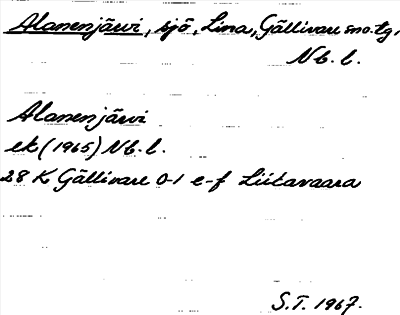 Alanenjärvi, sjö, Lina, Gällivare sno.tg,
Nb. l.
Alanenjärvi
ek (1965) Nb. l.
28 K Gällivare 0-1 e-f Liitavaara
S.T. 1967.